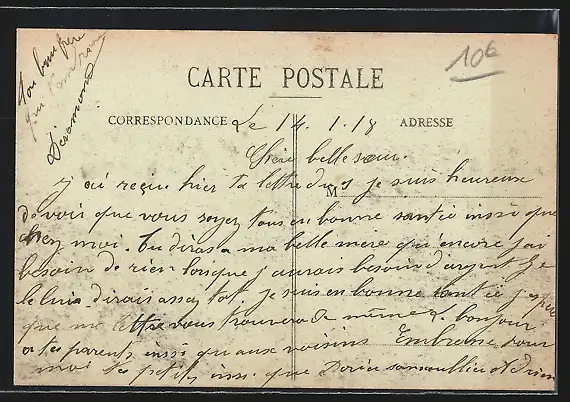 Ton beau frère
qui t'embrasse
Désamond
10€
CARTE POSTALE
CORRESPONDANCE Le 14. 1. 18 ADRESSE
Chère belle sœur.
j ai reçue hier ta lettre du 9 je suis heureuse
M
de voir que vous soyez tous en bonne santée inssi que
chez moi. Tu diras a ma belle mère qu'encore j'ai
besoin de rien lorsque j'aurais besoin d'argent Je
le lui dirais assez tot. Je suis en bonne santée j espère
que ma lettre vous trouvera de même. bonjour
a tes parents inssi qu aux voisins Embrasse pour
moi tes petits inssi que